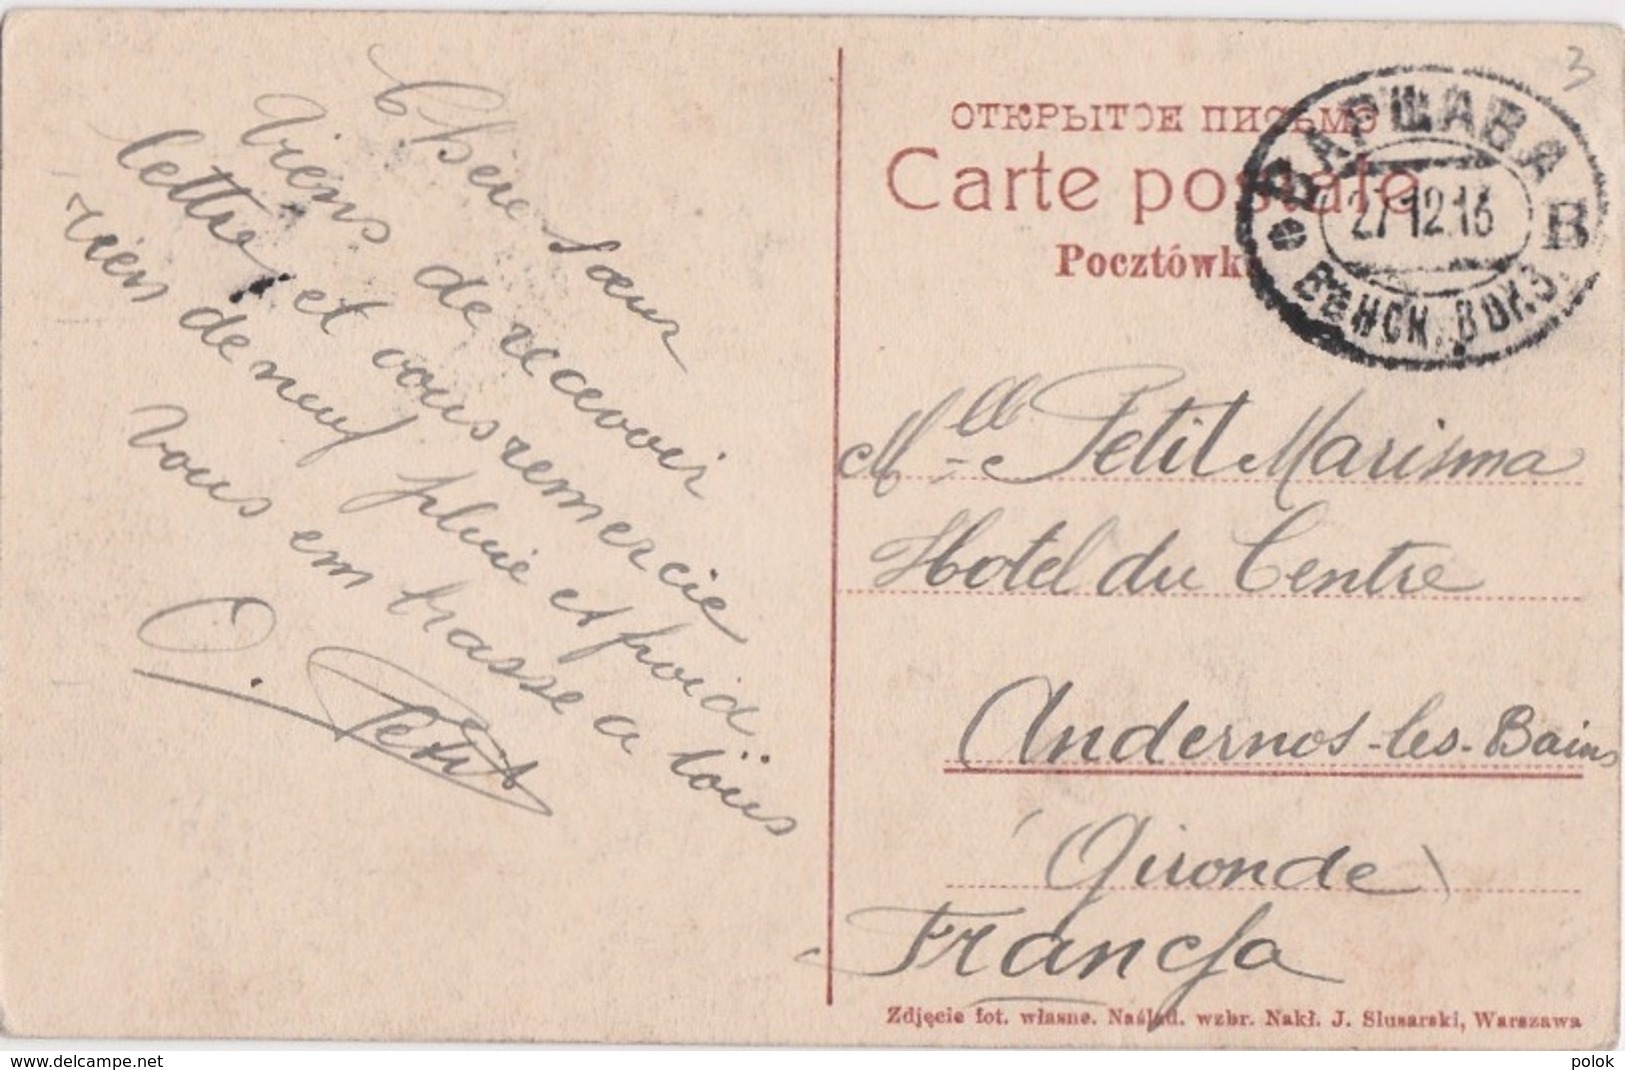 Chère sœur
viens de recevoir
lettre et vous remercie
rien de neuf pluie et froid
vous embrasse a tous
O. Petit
ОТКРЫТОЕ ПИСЬМО
Carte postale
Pocztówk
ВАРШАВА
27.12.13
В
ВѢНСК. ВОКЗ.
3
Mlle Petit Marisma
Hotel du Centre
Andernos-les-Bains
(Gironde)
Francja
Zdjęcie fot. własne. Naśląd. wzbr. Nakł. J. Slusarski, Warszawa
delcampe.net
polok